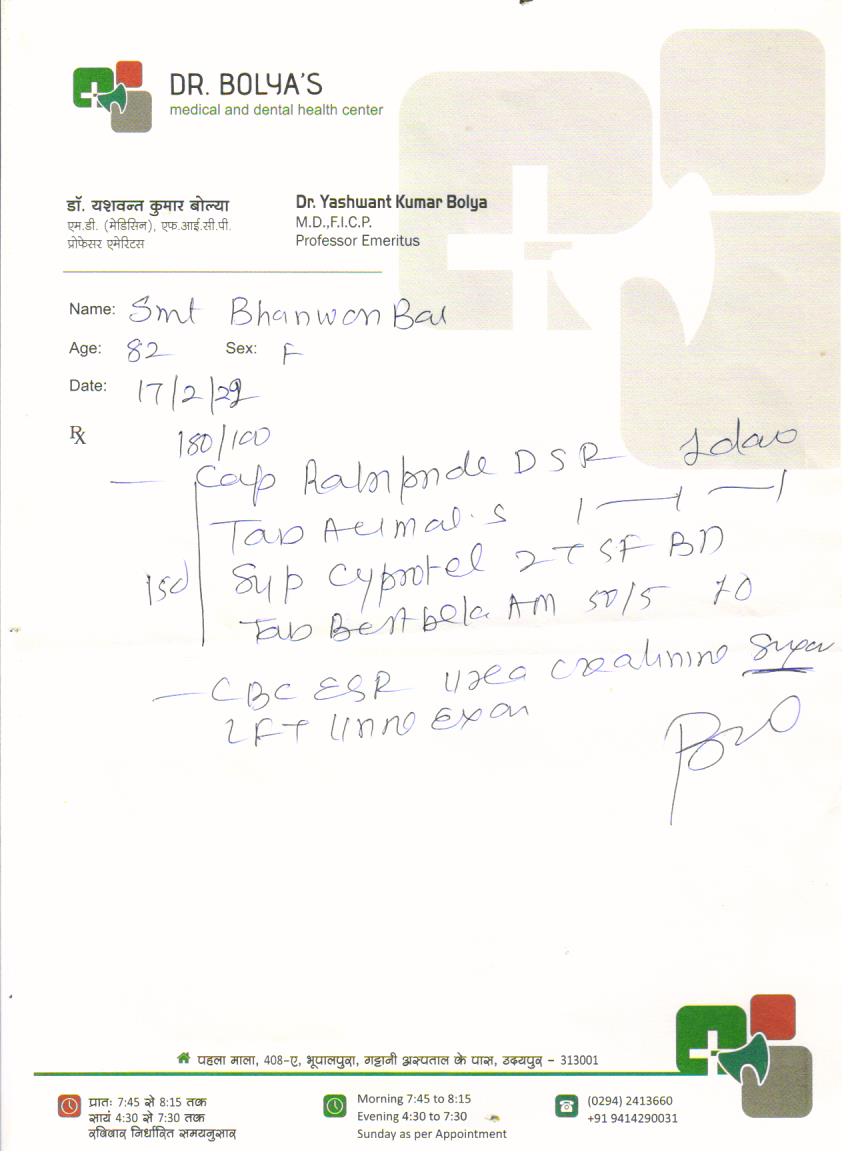 DR. BOLYA'S
medical and dental health center
डॉ. यशवन्त कुमार बोल्या
एम.डी. (मेडिसिन), एफ.आई.सी.पी.
प्रोफेसर एमेरिटस
Dr. Yashwant Kumar Bolya
M.D.,F.I.C.P.
Professor Emeritus
Name: Smt Bhanwon Bai
Age: 82 Sex: F
Date: 17/2/22
Rx 180/100
Cap DSR
Tab 1 — 1 — 1
15d Syp 2 T SF BD
Tab AM 50/5
CBC ESR Urea creatinine Sugar
LFT
पहला माला, 408-ए, भूपालपुरा, गट्टानी अस्पताल के पास, उदयपुर - 313001
प्रातः 7:45 से 8:15 तक
सायं 4:30 से 7:30 तक
रविवार निर्धारित समयनुसार
Morning 7:45 to 8:15
Evening 4:30 to 7:30
Sunday as per Appointment
(0294) 2413660
+91 9414290031